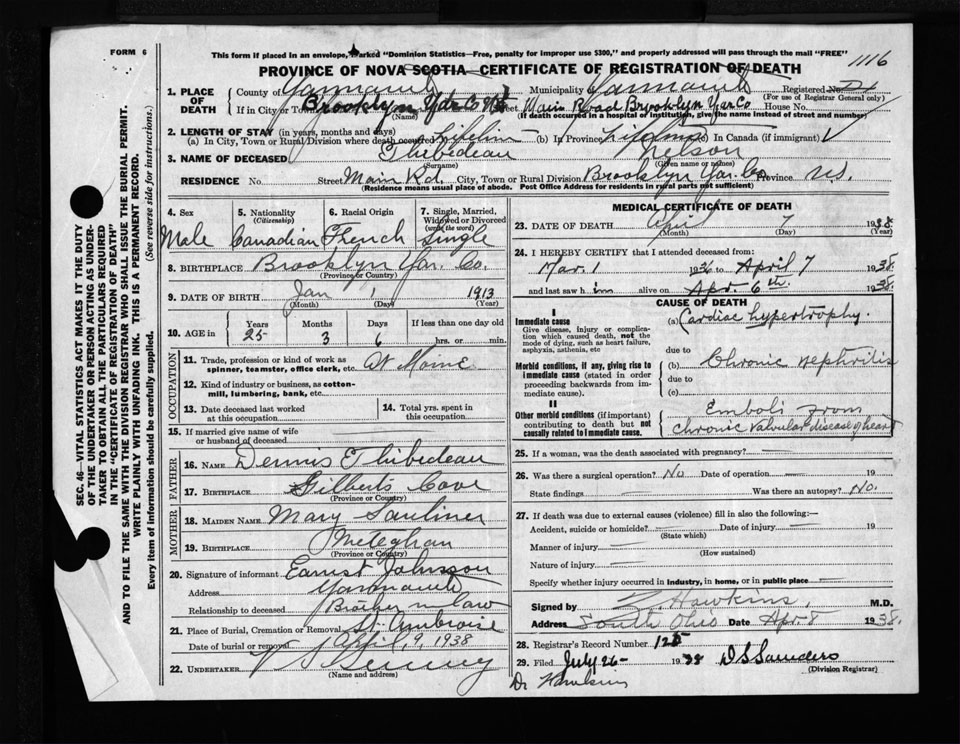 FORM 6
This form if placed in an envelope, marked "Dominion Statistics—Free, penalty for improper use $300," and properly addressed will pass through the mail "FREE"
1116
PROVINCE OF NOVA SCOTIA—CERTIFICATE OF REGISTRATION OF DEATH
1. PLACE OF DEATH
County of Yarmouth Municipality Yarmouth Registered No.
(For use of Registrar General only)
If in City or Town Brooklyn Yar Co N.S. Street Main Road Brooklyn Yar Co House No.
(Name) (If death occurred in a hospital or institution, give the name instead of street and number)
2. LENGTH OF STAY (in years, months and days)
(a) In City, Town or Rural Division where death occurred Lifetime (b) In Province Lifetime (c) In Canada (if immigrant)
3. NAME OF DECEASED Thibedeau Nelson
(Surname) (Given name or names)
RESIDENCE No. Street Main Rd. City, Town or Rural Division Brooklyn Yar. Co Province N.S.
(Residence means usual place of abode. Post Office Address for residents in rural parts not sufficient)
4. Sex Male
5. Nationality (Citizenship) Canadian
6. Racial Origin French
7. Single, Married, Widowed or Divorced (write the word) Single
8. BIRTHPLACE Brooklyn Yar. Co.
(Province or Country)
9. DATE OF BIRTH Jan 1 1913
(Month) (Day) (Year)
10. AGE in Years Months Days If less than one day old
25 3 6 hrs. or min.
OCCUPATION
11. Trade, profession or kind of work as spinner, teamster, office clerk, etc. At Home
12. Kind of industry or business, as cotton-mill, lumbering, bank, etc.
13. Date deceased last worked at this occupation
14. Total yrs. spent in this occupation
15. If married give name of wife or husband of deceased
FATHER
16. NAME Dennis Thibedeau
17. BIRTHPLACE Gilberts Cove
(Province or Country)
MOTHER
18. MAIDEN NAME Mary Sauliner
19. BIRTHPLACE Meteghan
(Province or Country)
20. Signature of informant Earnst Johnson
Address Yarmouth
Relationship to deceased Brother in law
21. Place of Burial, Cremation or Removal St. Ambroise
Date of burial or removal April 9, 1938
22. UNDERTAKER
(Name and address)
MEDICAL CERTIFICATE OF DEATH
23. DATE OF DEATH April 7 1938.
(Month) (Day) (Year)
24. I HEREBY CERTIFY that I attended deceased from:
Mar. 1 1936 to April 7 1938.
and last saw him alive on Apr. 6th. 1938.
CAUSE OF DEATH
I
Immediate cause
Give disease, injury or complication which caused death, not the mode of dying, such as heart failure, asphyxia, asthenia, etc
(a) Cardiac hypertrophy.
due to
Morbid conditions, if any, giving rise to immediate cause (stated in order proceeding backwards from immediate cause)
(b) Chronic nephritis
due to
(c)
II
Other morbid conditions (if important) contributing to death but not causally related to immediate cause.
Emboli from chronic valvular disease of heart
25. If a woman, was the death associated with pregnancy?
26. Was there a surgical operation? No Date of operation 19
State findings Was there an autopsy? No.
27. If death was due to external causes (violence) fill in also the following:—
Accident, suicide or homicide? Date of injury 19
(State which)
Manner of injury
(How sustained)
Nature of injury
Specify whether injury occurred in industry, in home, or in public place
Signed by Hawkins, M.D.
Address South Ohio Date Apr. 8 1938.
28. Registrar's Record Number 125
29. Filed July 26- 1938 D S Saunders
(Division Registrar)
Dr Hawkins
SEC. 46—VITAL STATISTICS ACT MAKES IT THE DUTY
OF THE UNDERTAKER OR PERSON ACTING AS UNDERTAKER
TO OBTAIN ALL THE PARTICULARS REQUIRED
IN THE "CERTIFICATE OF REGISTRATION OF DEATH"
AND TO FILE THE SAME WITH THE DIVISION REGISTRAR WHO SHALL ISSUE THE BURIAL PERMIT.
WRITE PLAINLY WITH UNFADING INK. THIS IS A PERMANENT RECORD.
Every item of information should be carefully supplied. (See reverse side for instructions.)